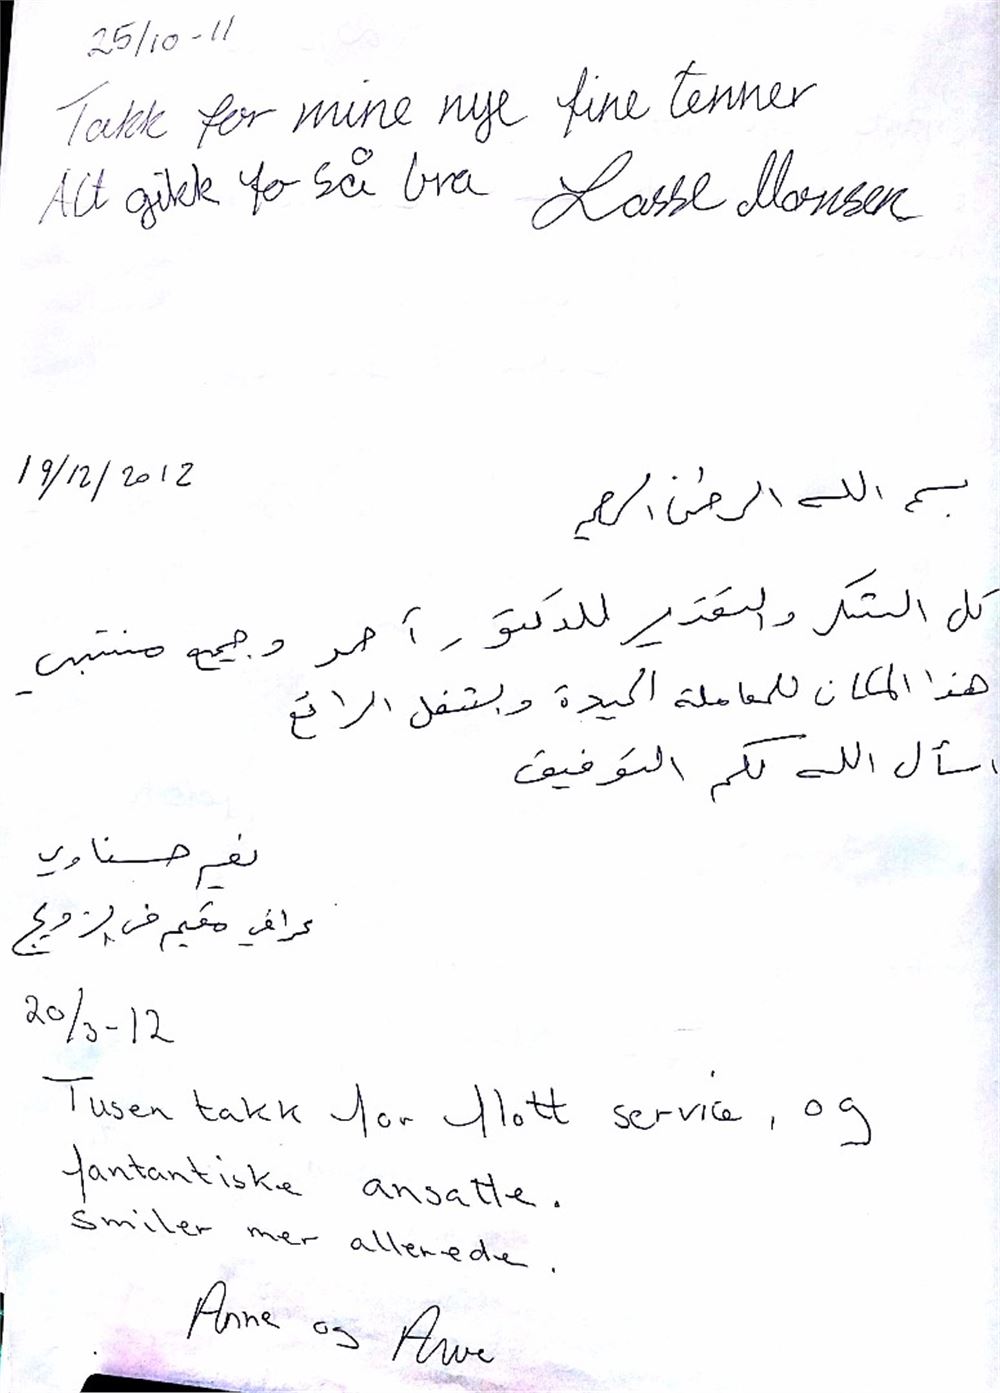 25/10-11
Takk for mine nye fine tenner
Alt gikk jo så bra Lasse Monsen
19/12/2012
بسم الله الرحمن الرحيم
كل الشكر والتقدير للدكتور أحمد وجميع منتسبي
هذا المكان للمعاملة الجيدة وبشغل الرائع
اسأل الله لكم التوفيق
نعيم حسناوي
عراقي مقيم في النرويج
20/3-12
Tusen takk for flott service, og
fantantiske ansatte.
Smiler mer allerede.
Anne og Arve